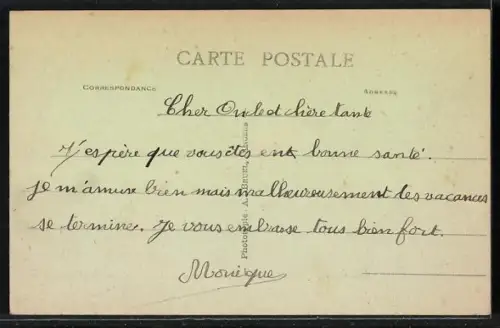 CARTE POSTALE
CORRESPONDANCE
ADRESSE
Cher Oncle et chère tante
J'espère que vous êtes en bonne santé.
je m'amuse bien mais malheureusement les vacances
se termine. Je vous embrasse tous bien fort.
Monique
Photographie A.